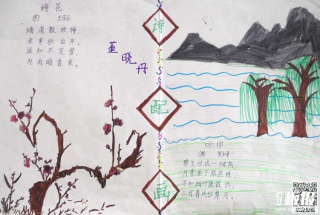 梅花
墙角数枝梅
凌寒独自开
遥知不是雪
为有暗香来
董晓丹
诗
配
画
咏柳
碧玉妆成一树高
万条垂下绿丝绦
不知细叶谁裁出
二月春风似剪刀